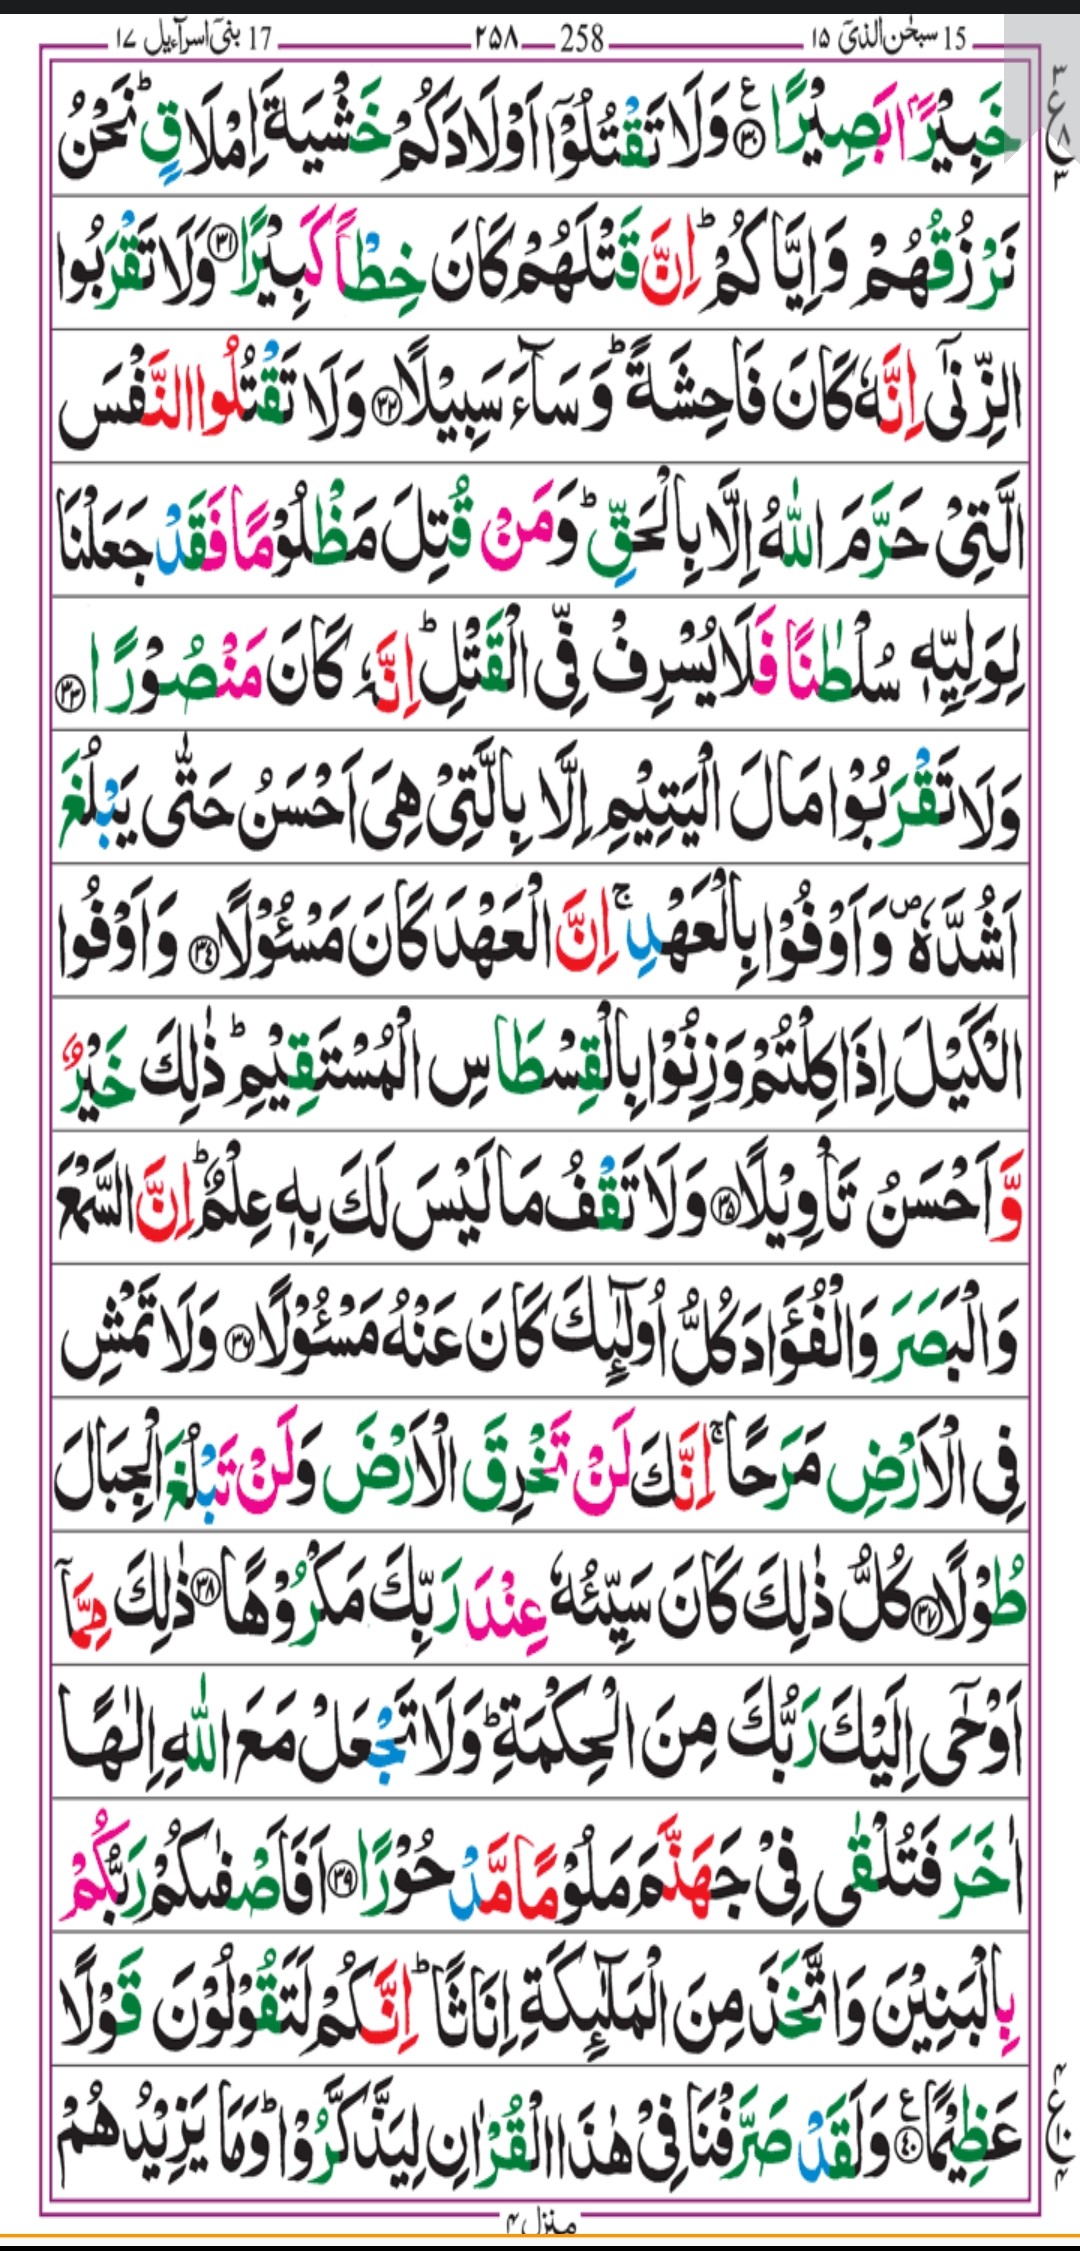 15 سبحٰن الذیٓ ۱۵ 258 ۲۵۸ 17 بنیٓ اسرآءیل ۱۷
خَبِيْرًۢا بَصِيْرًا ۟۳۰ ع وَلَا تَقْتُلُوْۤا اَوْلَادَكُمْ خَشْيَةَ اِمْلَاقٍ ؕ نَحْنُ
نَرْزُقُهُمْ وَاِيَّاكُمْ ؕ اِنَّ قَتْلَهُمْ كَانَ خِطْاً كَبِيْرًا ۳۱ وَلَا تَقْرَبُوا
الزِّنٰۤى اِنَّهٗ كَانَ فَاحِشَةً ؕ وَسَآءَ سَبِيْلًا ۳۲ وَلَا تَقْتُلُوا النَّفْسَ
الَّتِيْ حَرَّمَ اللّٰهُ اِلَّا بِالْحَقِّ ؕ وَمَنْ قُتِلَ مَظْلُوْمًا فَقَدْ جَعَلْنَا
لِوَلِيِّهٖ سُلْطٰنًا فَلَا يُسْرِفْ فِّي الْقَتْلِ ؕ اِنَّهٗ كَانَ مَنْصُوْرًا ۳۳
وَلَا تَقْرَبُوْا مَالَ الْيَتِيْمِ اِلَّا بِالَّتِيْ هِيَ اَحْسَنُ حَتّٰى يَبْلُغَ
اَشُدَّهٗ ۪ وَاَوْفُوْا بِالْعَهْدِ ۚ اِنَّ الْعَهْدَ كَانَ مَسْـُٔوْلًا ۳۴ وَاَوْفُوا
الْكَيْلَ اِذَا كِلْتُمْ وَزِنُوْا بِالْقِسْطَاسِ الْمُسْتَقِيْمِ ؕ ذٰلِكَ خَيْرٌ
وَّاَحْسَنُ تَاْوِيْلًا ۳۵ وَلَا تَقْفُ مَا لَيْسَ لَكَ بِهٖ عِلْمٌ ؕ اِنَّ السَّمْعَ
وَالْبَصَرَ وَالْفُؤَادَ كُلُّ اُولٰٓئِكَ كَانَ عَنْهُ مَسْـُٔوْلًا ۳۶ وَلَا تَمْشِ
فِي الْاَرْضِ مَرَحًا ۚ اِنَّكَ لَنْ تَخْرِقَ الْاَرْضَ وَلَنْ تَبْلُغَ الْجِبَالَ
طُوْلًا ۳۷ كُلُّ ذٰلِكَ كَانَ سَيِّئُهٗ عِنْدَ رَبِّكَ مَكْرُوْهًا ۳۸ ذٰلِكَ مِمَّاۤ
اَوْحٰۤى اِلَيْكَ رَبُّكَ مِنَ الْحِكْمَةِ ؕ وَلَا تَجْعَلْ مَعَ اللّٰهِ اِلٰهًا
اٰخَرَ فَتُلْقٰى فِيْ جَهَنَّمَ مَلُوْمًا مَّدْحُوْرًا ۳۹ اَفَاَصْفٰىكُمْ رَبُّكُمْ
بِالْبَنِيْنَ وَاتَّخَذَ مِنَ الْمَلٰٓئِكَةِ اِنَاثًا ؕ اِنَّكُمْ لَتَقُوْلُوْنَ قَوْلًا
عَظِيْمًا ۴۰ ع وَلَقَدْ صَرَّفْنَا فِيْ هٰذَا الْقُرْاٰنِ لِيَذَّكَّرُوْا ؕ وَمَا يَزِيْدُهُمْ
منزل ۴